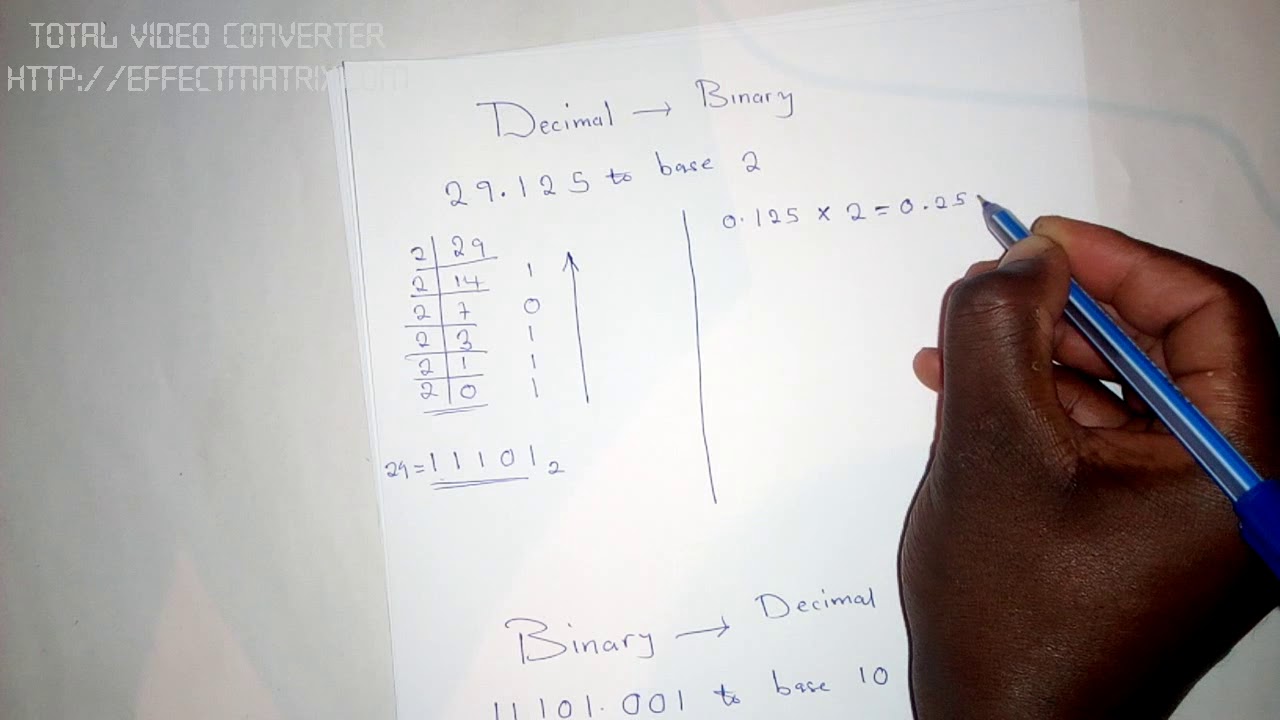 TOTAL VIDEO CONVERTER
HTTP://EFFECTMATRIX.COM
Decimal → Binary
29.125 to base 2
2 | 29
2 | 14 1
2 | 7 0
2 | 3 1
2 | 1 1
2 | 0 1
29 = 11101₂
0.125 × 2 = 0.25
Binary → Decimal
11101.001 to base 10